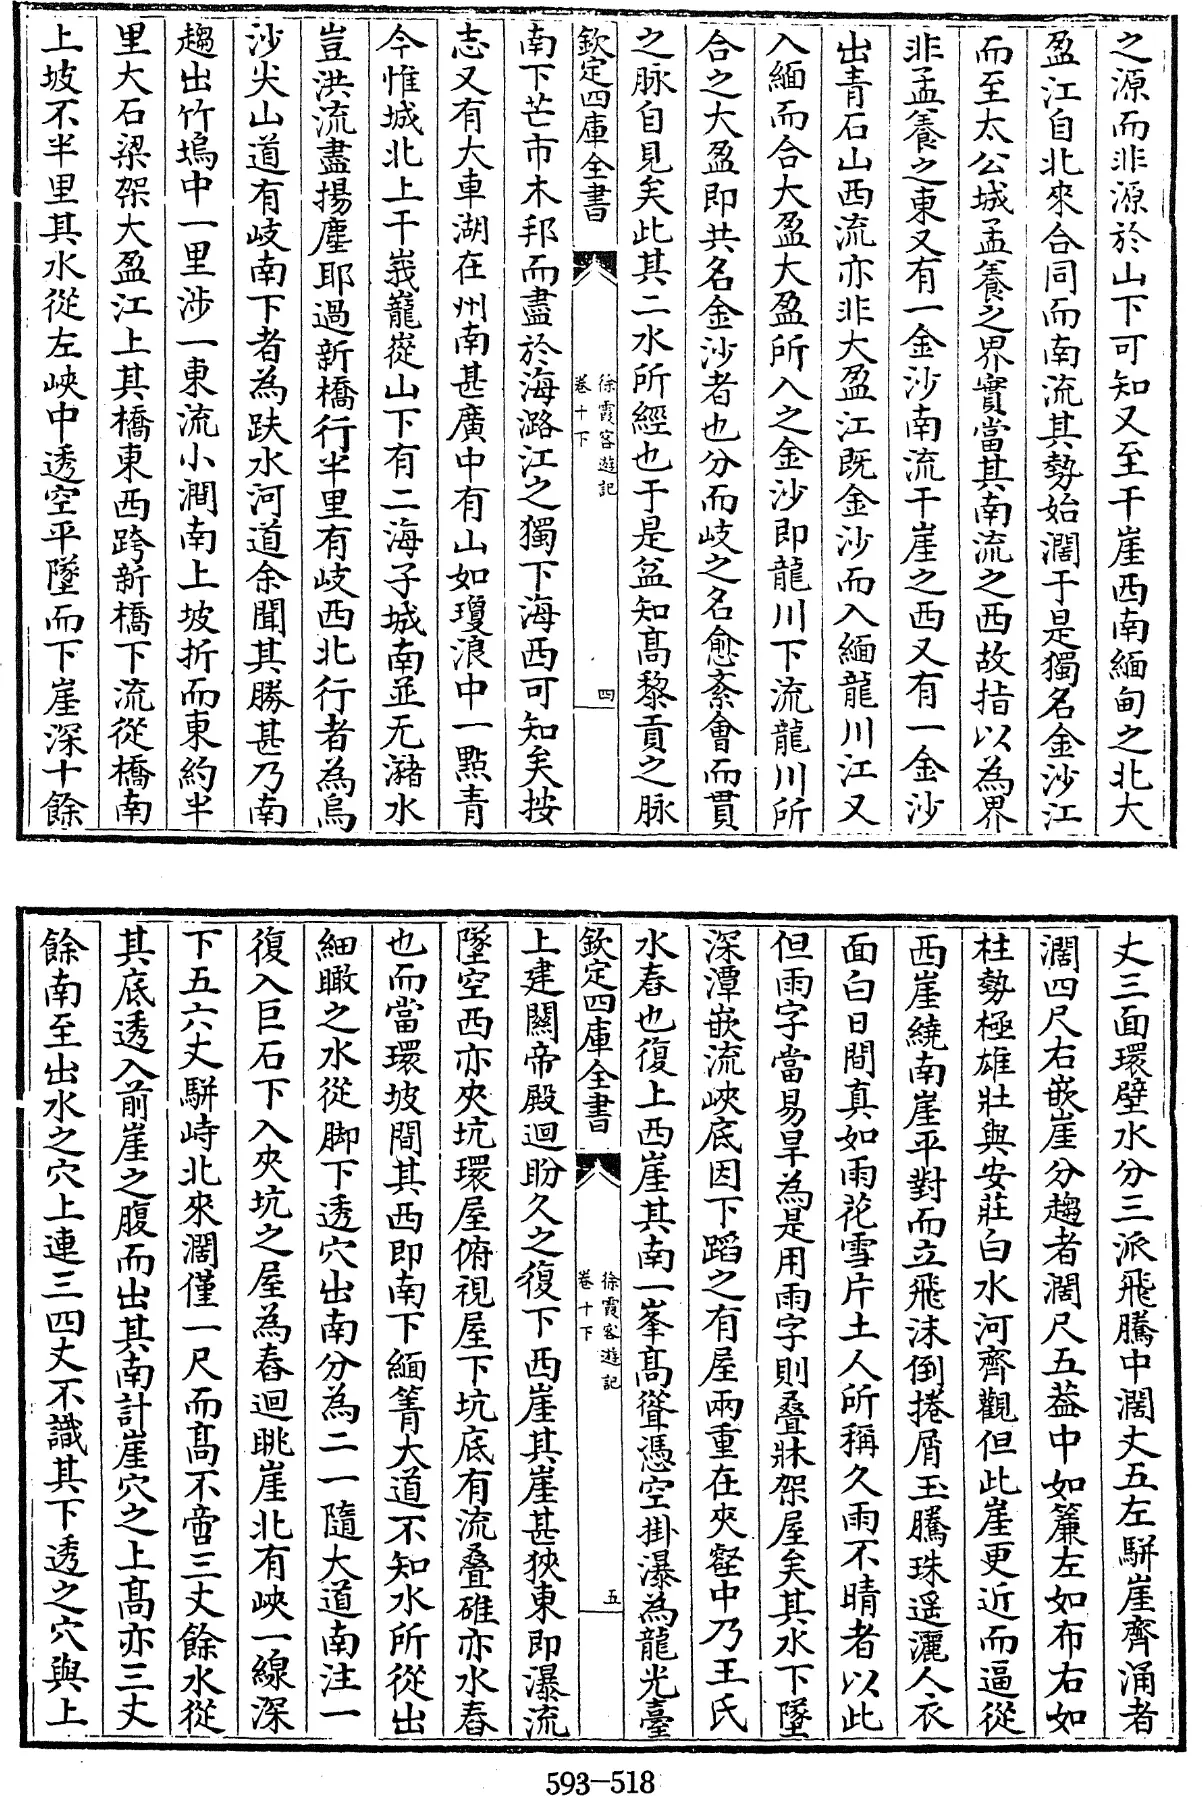 之源而非源於山下可知又至干崖西南緬甸之北大
盈江自北來合同而南流其勢始濶于是獨名金沙江
而至太公城孟養之界實當其南流之西故指以為界
非孟養之東又有一金沙南流干崖之西又有一金沙
出青石山西流亦非大盈江既金沙而入緬龍川江又
入緬而合大盈大盈所入之金沙即龍川下流龍川所
合之大盈即共名金沙者也分而岐之名愈紊會而貫
之脉自見矣此其二水所經也于是益知髙黎貢之脉
欽定四庫全書
徐霞客遊記
卷十下
四
南下芒市木邦而盡於海潞江之獨下海西可知矣按
志又有大車湖在州南甚廣中有山如瓊浪中一點青
今惟城北上干峩巃嵷山下有二海子城南並无瀦水
豈洪流盡揚塵耶過新橋行半里有岐西北行者為烏
沙尖山道有岐南下者為趺水河道余聞其勝甚乃南
趨出竹塢中一里涉一東流小澗南上坡折而東約半
里大石梁架大盈江上其橋東西跨新橋下流從橋南
上坡不半里其水從左峽中透空平墜而下崖深十餘
丈三面環壁水分三派飛騰中濶丈五左駢崖齊涌者
濶四尺右嵌崖分趨者濶尺五葢中如簾左如布右如
柱勢極雄壯與安莊白水河齊觀但此崖更近而逼從
西崖繞南崖平對而立飛沫倒捲屑玉騰珠遥灑人衣
面白日間真如雨花雪片土人所稱久雨不晴者以此
但雨字當易旱為是用雨字則叠牀架屋矣其水下墜
深潭嵌流峽底因下蹈之有屋兩重在夾壑中乃王氏
水舂也復上西崖其南一峯髙聳憑空掛瀑為龍光臺
欽定四庫全書
徐霞客遊記
卷十下
五
上建關帝殿迴盼久之復下西崖其崖甚狹東即瀑流
墜空西亦夾坑環屋俯視屋下坑底有流叠碓亦水舂
也而當環坡間其西即南下緬箐大道不知水所從出
細瞰之水從脚下透穴出南分為二一隨大道南注一
復入巨石下入夾坑之屋為舂迴眺崖北有峽一線深
下五六丈駢峙北來濶僅一尺而髙不啻三丈餘水從
其底透入前崖之腹而出其南計崖穴之上髙亦三丈
餘南至出水之穴上連三四丈不識其下透之穴與上
593-518